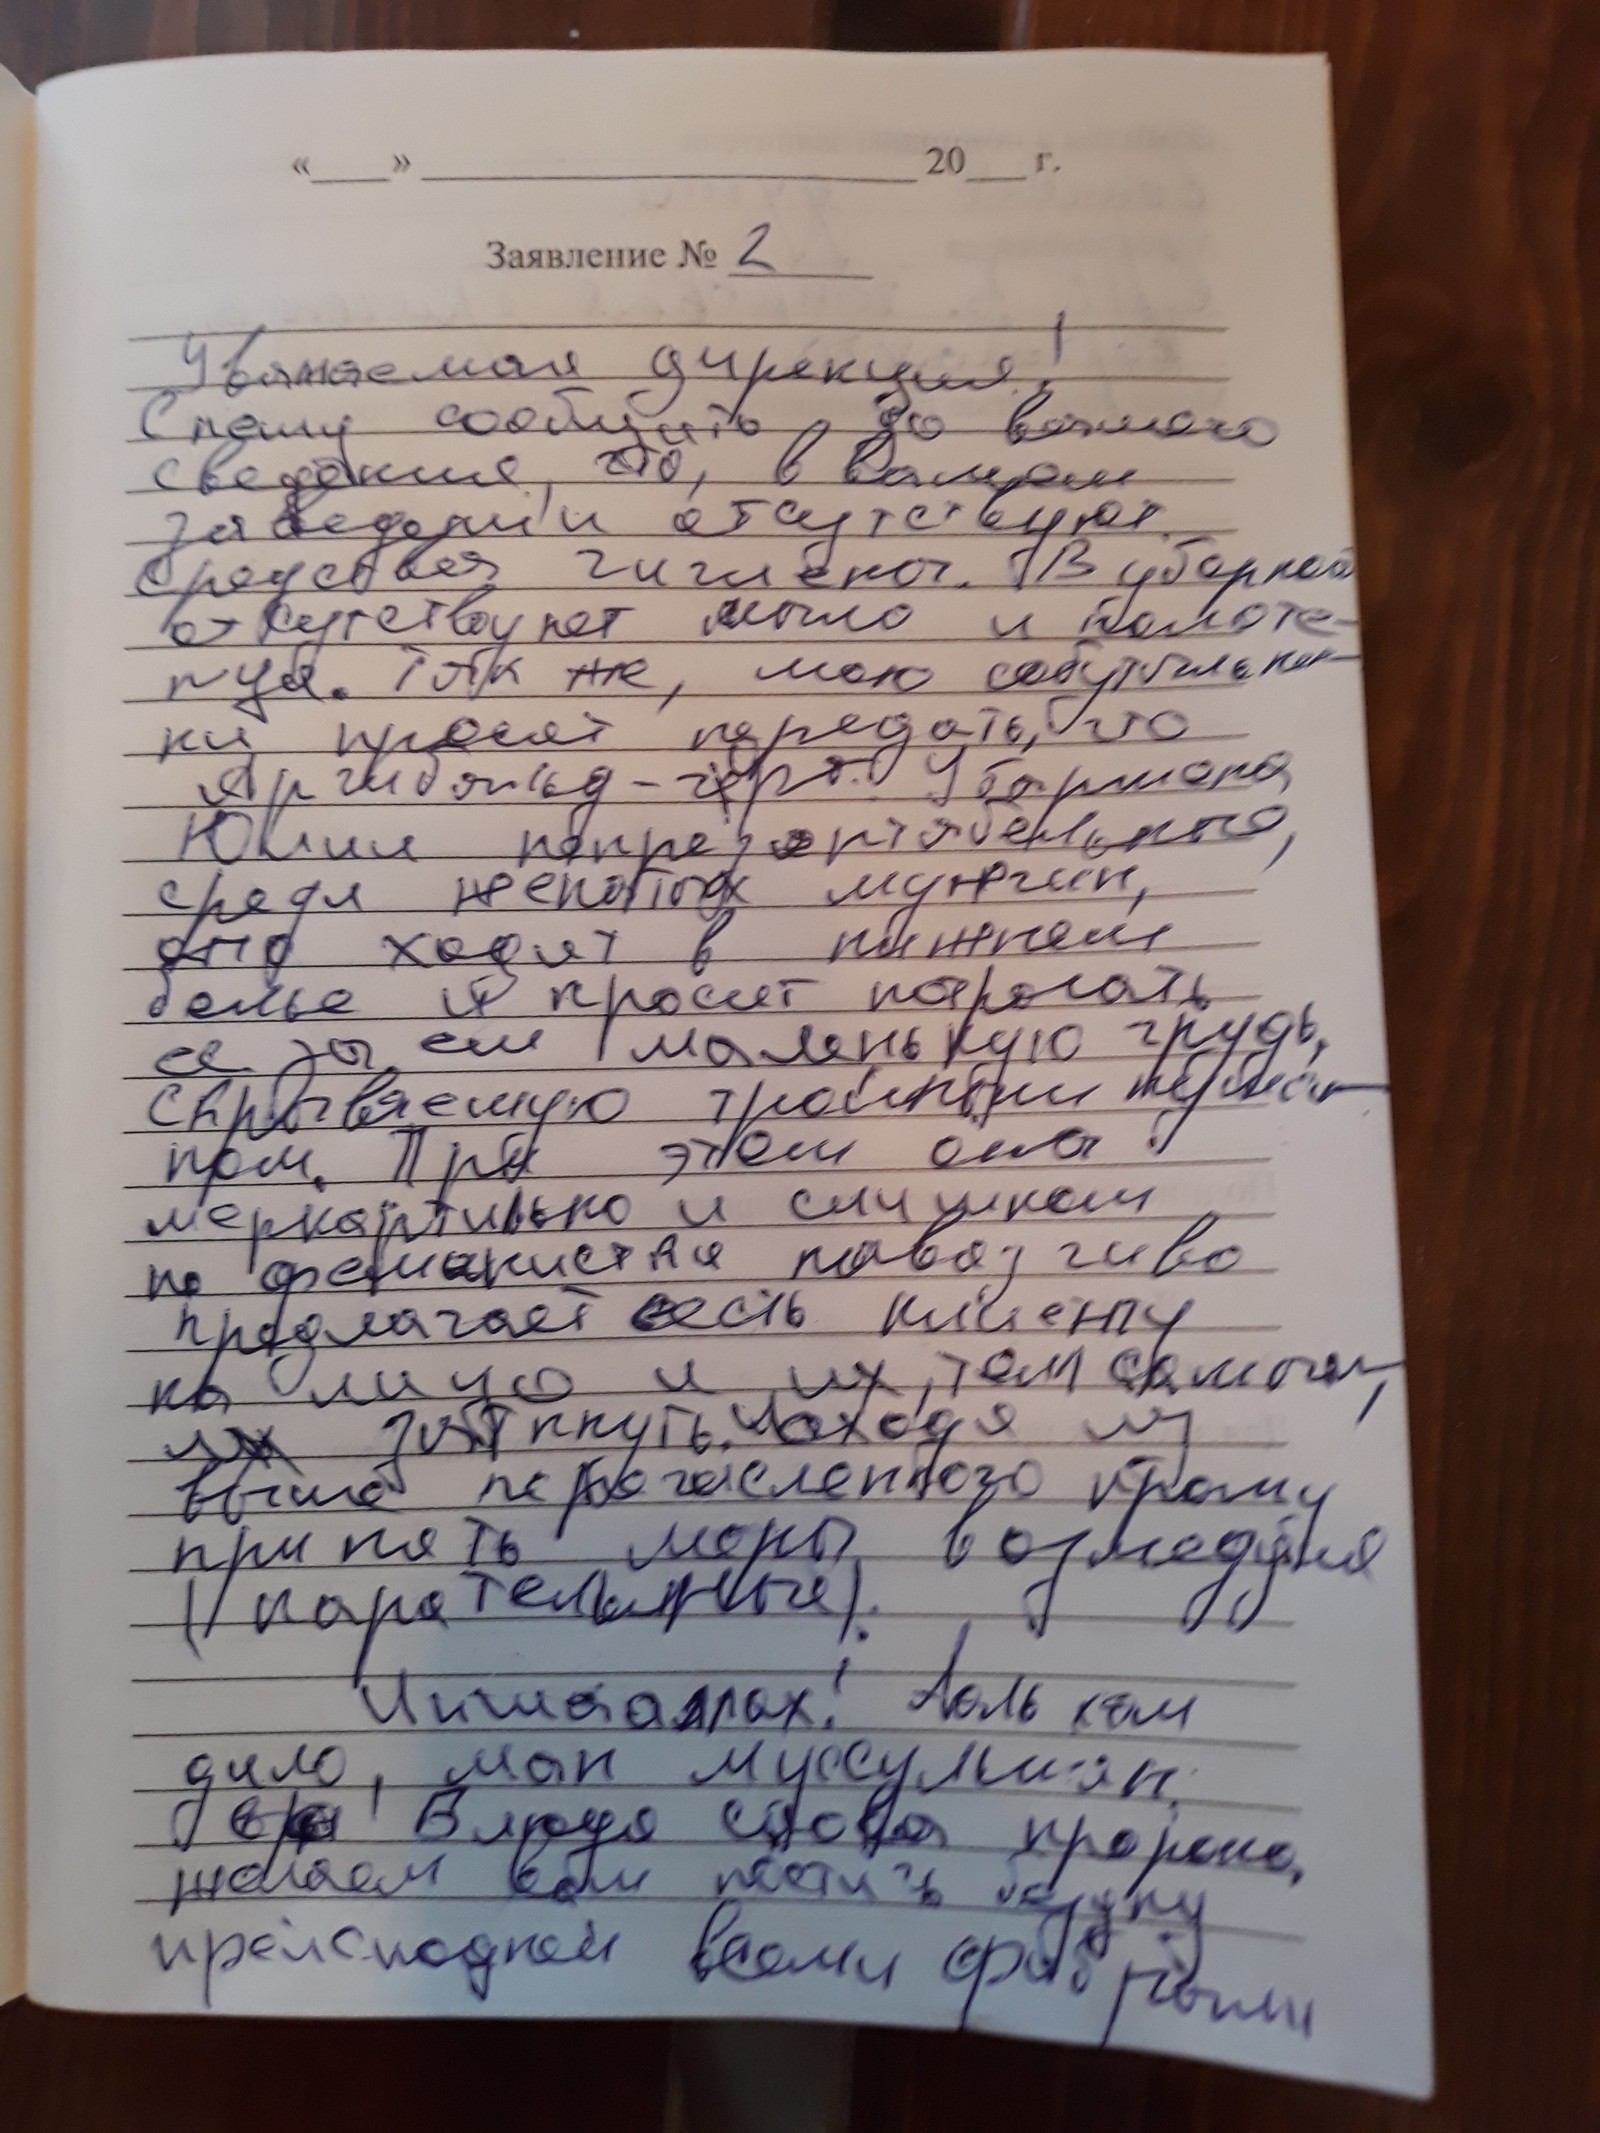 «___» ____________ 20___ г.
Заявление № 2
Уважаемая дирекция!
Спешу сообщить до вашего
сведения, что, в вашем
заведении отсутствуют
средства гигиены. В уборной
отсутствует мыло и полоте-
нца. Так же, мою собутыльни-
ки просят передать, что
Арчибальд - чёрт. У бармена
Юлии
среди женатых мужчин,
она ходит в нижнем
белье и просит потрогать
ее за ее маленькую грудь,
скрываемую тройным
При этом она
меркантильно и слишком
по феминистки навязчиво
предлагает сесть клиенту
на лицо и их, тем самым,
их заткнуть. Исходя из
выше перечисленного прошу
принять меры возмездия
(карательные).
Иншааллах! Аль хам
дило, ман муссульман.
Блюдя слова пророка,
желаем вам постичь бездну
преисподней всеми фибрами